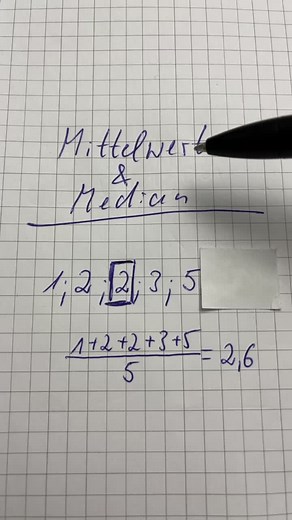 Mittelwert
&
Median
1; 2; 2; 3; 5
1+2+2+3+5
5
= 2,6